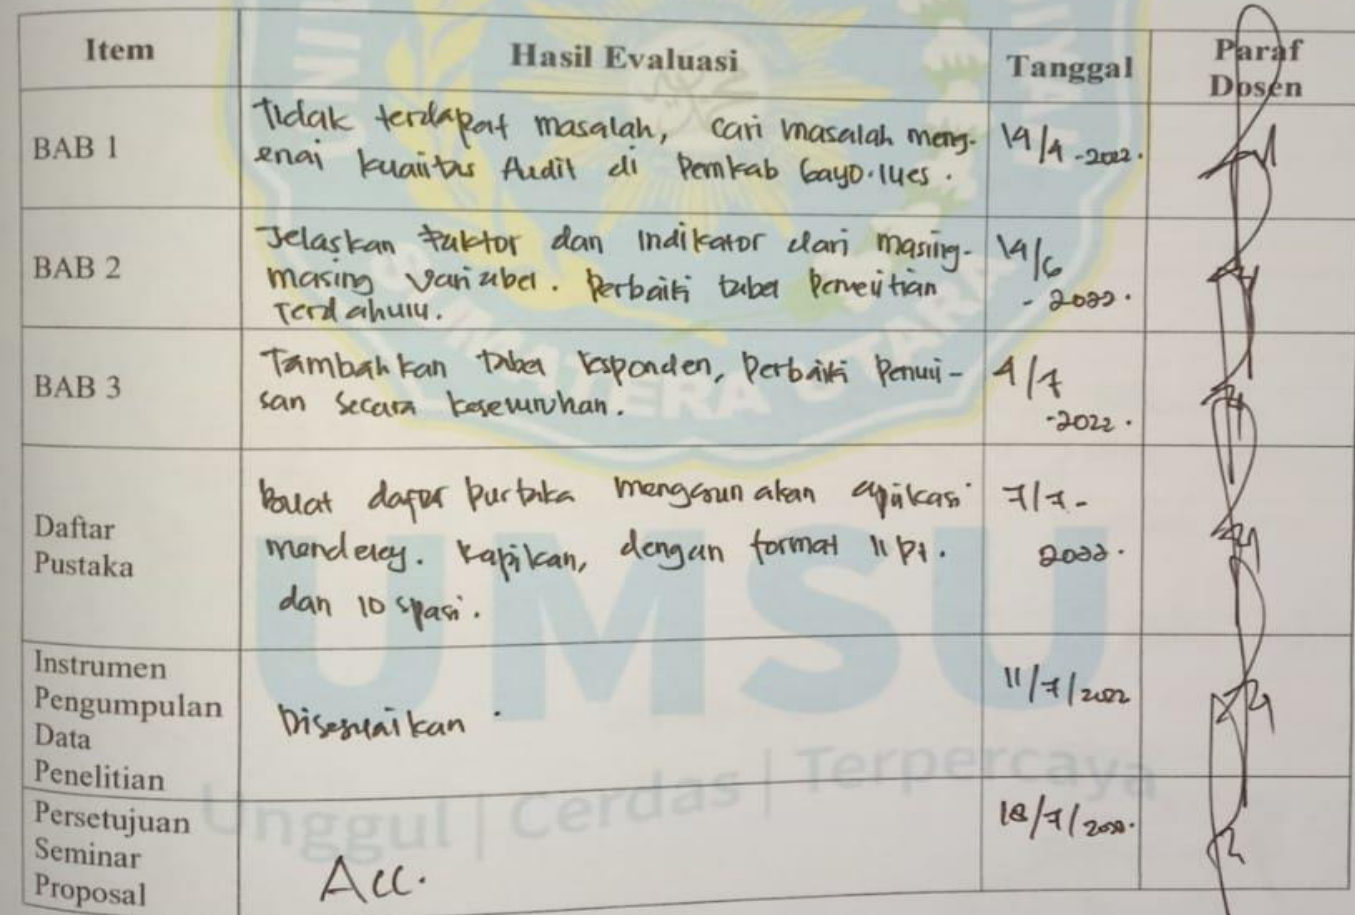 Item Hasil Evaluasi Tanggal Paraf
Dosen
BAB 1
Tidak terdapat masalah, cari masalah meng-
enai kualitas Audit di Pemkab Gayo.lues.
14/4-2022.
BAB 2
Jelaskan Faktor dan Indikator dari masing-
masing Variabel. Perbaiki tabel Penelitian
Terdahulu.
14/6
- 2022.
BAB 3
Tambahkan Tabel responden, Perbaiki Penuli-
san Secara keseluruhan.
4/7
-2022.
Daftar
Pustaka
Buat daftar Pustaka menggunakan aplikasi
mendeley. Rapikan, dengan format 11 Pt.
dan 10 spasi.
7/7-
2022.
Instrumen
Pengumpulan
Data
Penelitian
Disesuaikan.
11/7/2022
Persetujuan
Seminar
Proposal
Acc.
18/7/2022.
UMATERA UTARA
UMSU
Unggul | Cerdas | Terpercaya